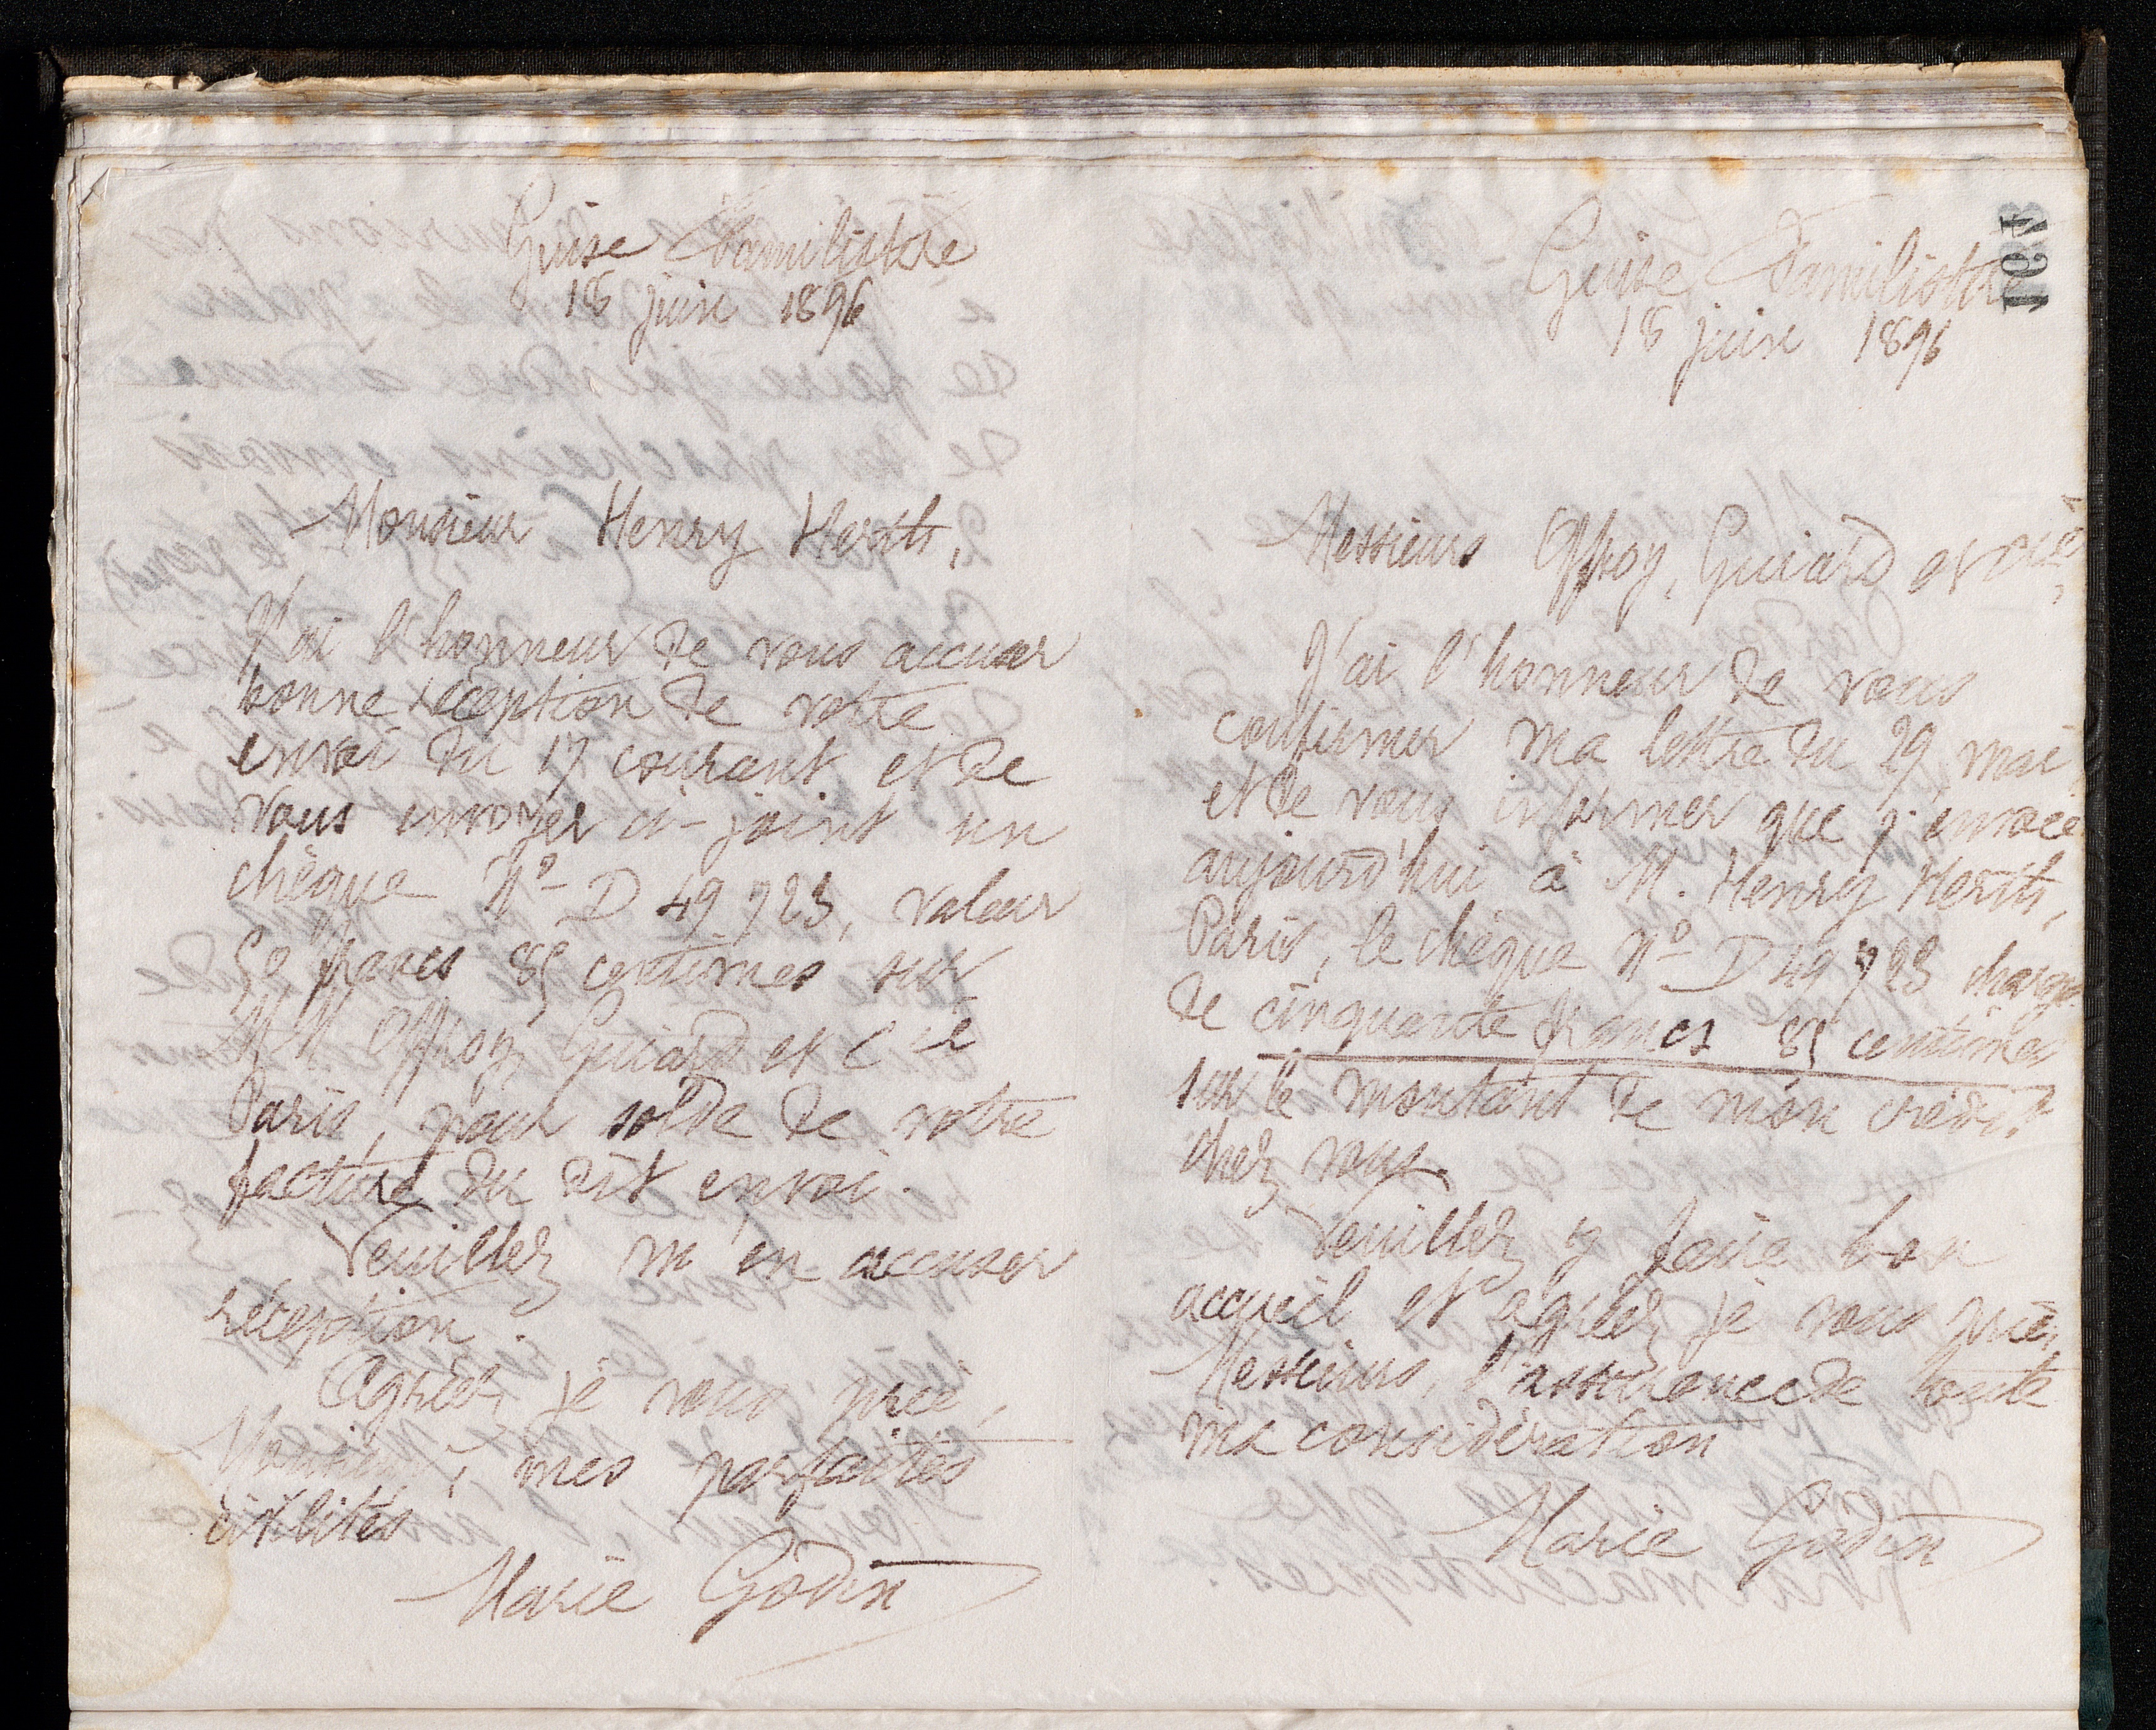 Guise Familistère
18 juin 1896
Monsieur Henry Herth,
J'ai l'honneur de vous accuser
bonne réception de votre
envoi du 17 courant et de
vous envoyer ci-joint un
chèque Nº D 49 923, valeur
50 francs 85 centimes sur
M.M. Offroy, Guiard et Cie
Paris, pour solde de votre
facture du dit envoi.
Veuillez m'en accuser
réception.
Agréez, je vous prie,
Monsieur, mes parfaites
civilités
Marie Godin
Guise Familistère
18 juin 1896
Messieurs Offroy, Guiard et Cie,
J'ai l'honneur de vous
confirmer ma lettre du 29 mai
et de vous informer que j'envoie
aujourd'hui à M. Henry Herth,
Paris, le chèque Nº D 49 923 chargé
de cinquante francs 85 centimes
sur le montant de mon crédit
chez vous.
Veuillez y faire bon
accueil et agréez, je vous prie,
Messieurs, l'assurance de toute
ma considération
Marie Godin